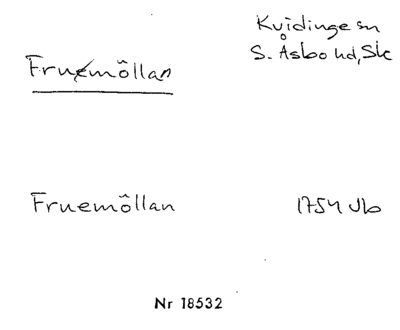 Kvidinge sn
S. Åsbo hd, Sk
Fruemôllan
Fruemôllan 1754 Jb
Nr 18532